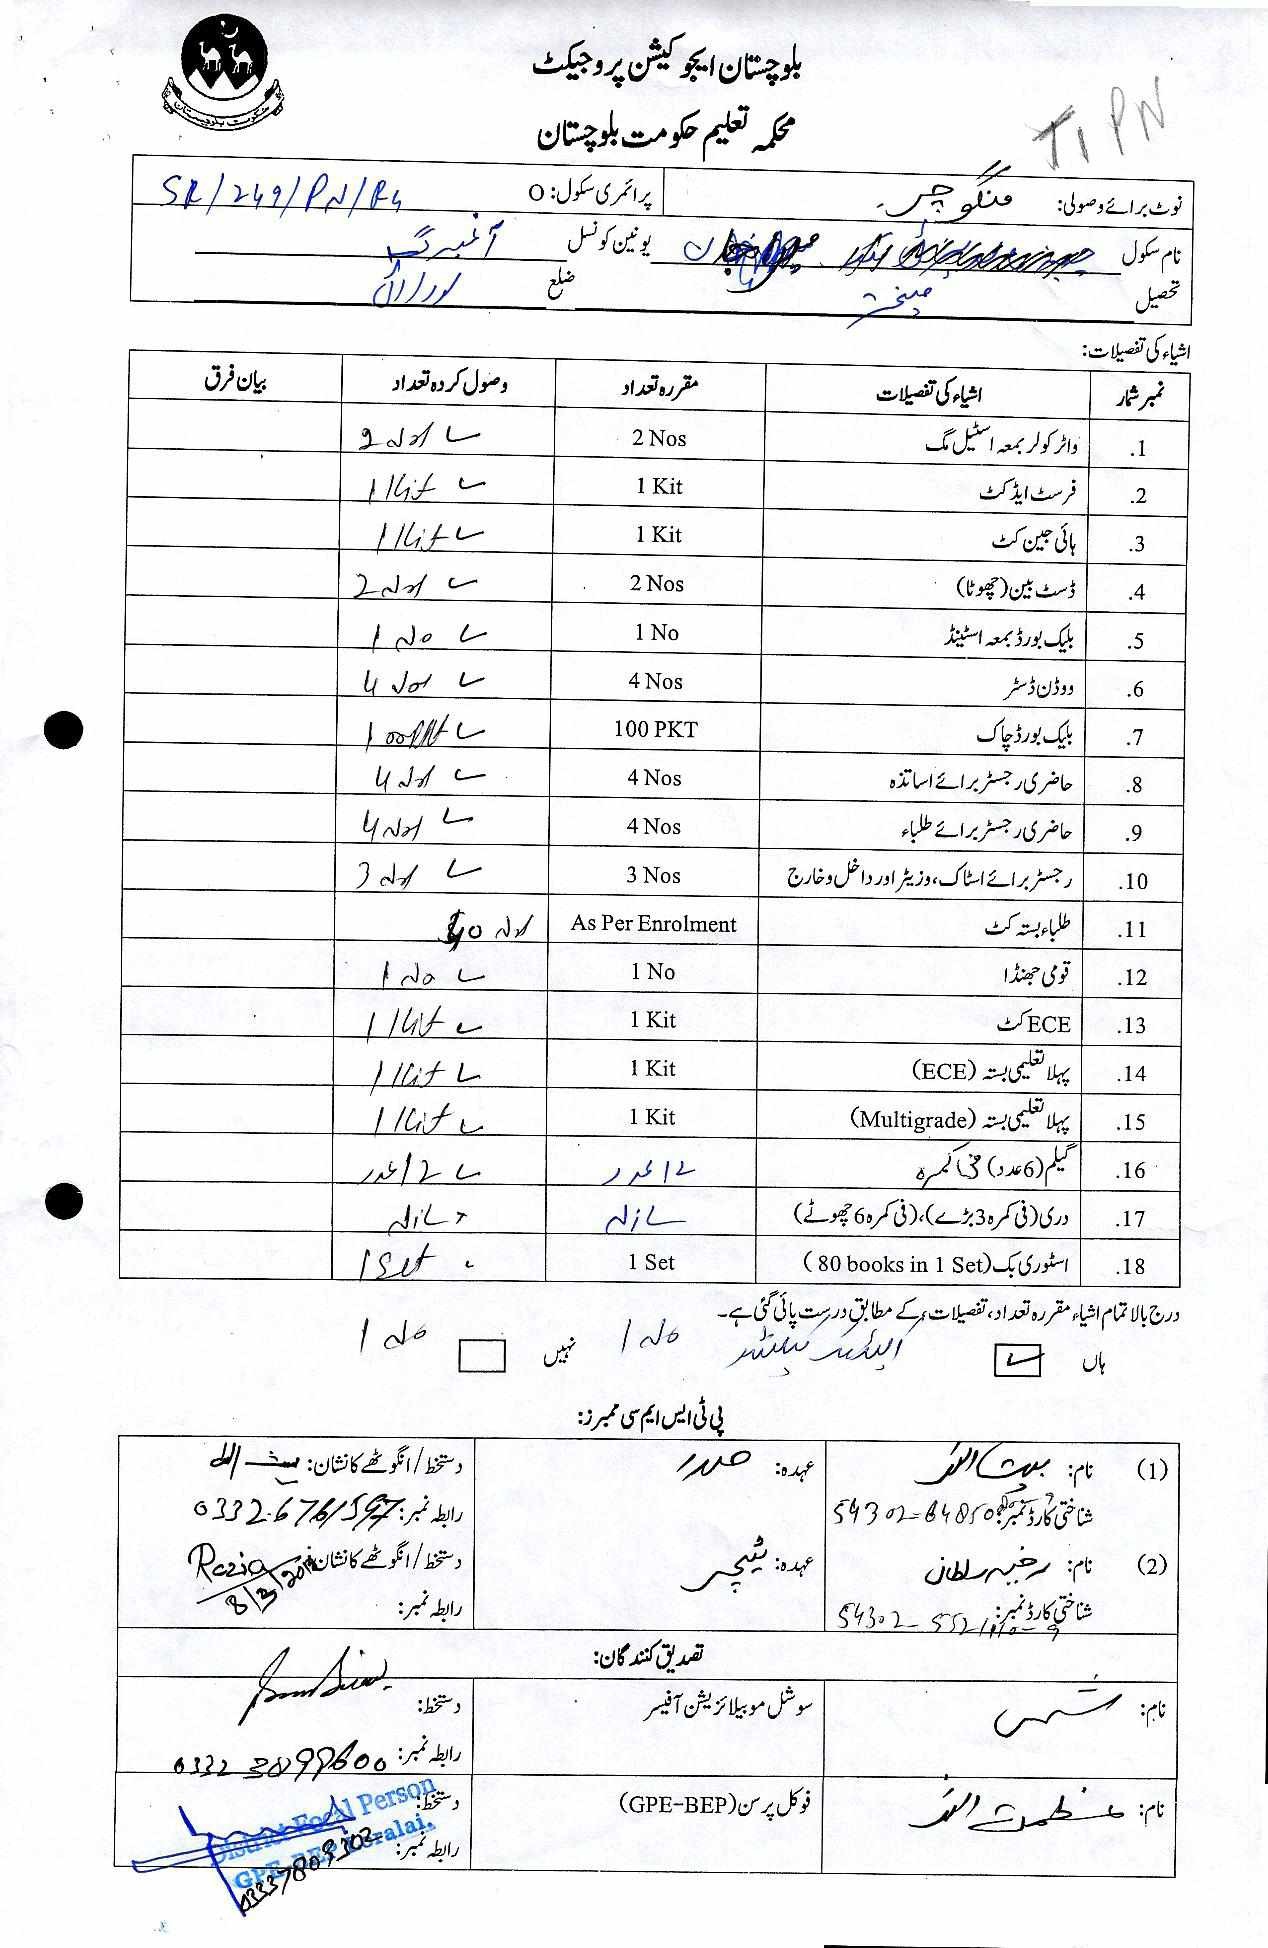 حکومت بلوچستان
بلوچستان ایجوکیشن پروجیکٹ
محکمہ تعلیم حکومت بلوچستان
T1 PN
نوٹ برائے وصولی: منگوچر پرائمری سکول: O SR/249/PN/R4
نام سکول یونین کونسل آغبرگ
تحصیل ضلع لورالائی
اشیاء کی تفصیلات:
نمبر شمار اشیاء کی تفصیلات مقررہ تعداد وصول کردہ تعداد بیان فرق
1. واٹر کولر بمعہ اسٹیل مگ 2 Nos 2 Nos
2. فرسٹ ایڈ کٹ 1 Kit 1 Kit
3. ہائی جین کٹ 1 Kit 1 Kit
4. ڈسٹ بین (چھوٹا) 2 Nos 2 Nos
5. بلیک بورڈ بمعہ اسٹینڈ 1 No 1 No
6. ووڈن ڈسٹر 4 Nos 4 Nos
7. بلیک بورڈ چاک 100 PKT 100 PKT
8. حاضری رجسٹر برائے اساتذہ 4 Nos 4 Nos
9. حاضری رجسٹر برائے طلباء 4 Nos 4 Nos
10. رجسٹر برائے اسٹاک، وزیٹر اور داخل و خارج 3 Nos 3 Nos
11. طلباء بستہ کٹ As Per Enrolment 40 Nos
12. قومی جھنڈا 1 No 1 No
13. ECE کٹ 1 Kit 1 Kit
14. پہلا تعلیمی بستہ (ECE) 1 Kit 1 Kit
15. پہلا تعلیمی بستہ (Multigrade) 1 Kit 1 Kit
16. گیلم (6 عدد) فی کمرہ 12 عدد 12 عدد
17. دری (فی کمرہ 3 بڑے)، (فی کمرہ 6 چھوٹے)
18. اسٹوری بک (80 books in 1 Set) 1 Set 1 Set
درج بالا تمام اشیاء مقررہ تعداد، تفصیلات کے مطابق درست پائی گئی ہے۔
ہاں 1 No نہیں 1 No
پی ٹی ایس ایم سی ممبرز:
(1) نام: عہدہ: صدر دستخط / انگوٹھے کا نشان:
شناختی کارڈ نمبر: رابطہ نمبر: 0332-6761597
(2) نام: رضیہ سلطان عہدہ: ٹیچر دستخط / انگوٹھے کا نشان: Razia
شناختی کارڈ نمبر: رابطہ نمبر:
تصدیق کنندگان:
نام: شمس سوشل موبیلائزیشن آفیسر دستخط:
رابطہ نمبر: 0332 3899600
نام: عظمت اللہ فوکل پرسن (GPE-BEP) دستخط:
رابطہ نمبر: 03337809302
District Focal Person
GPE-BEP Loralai.